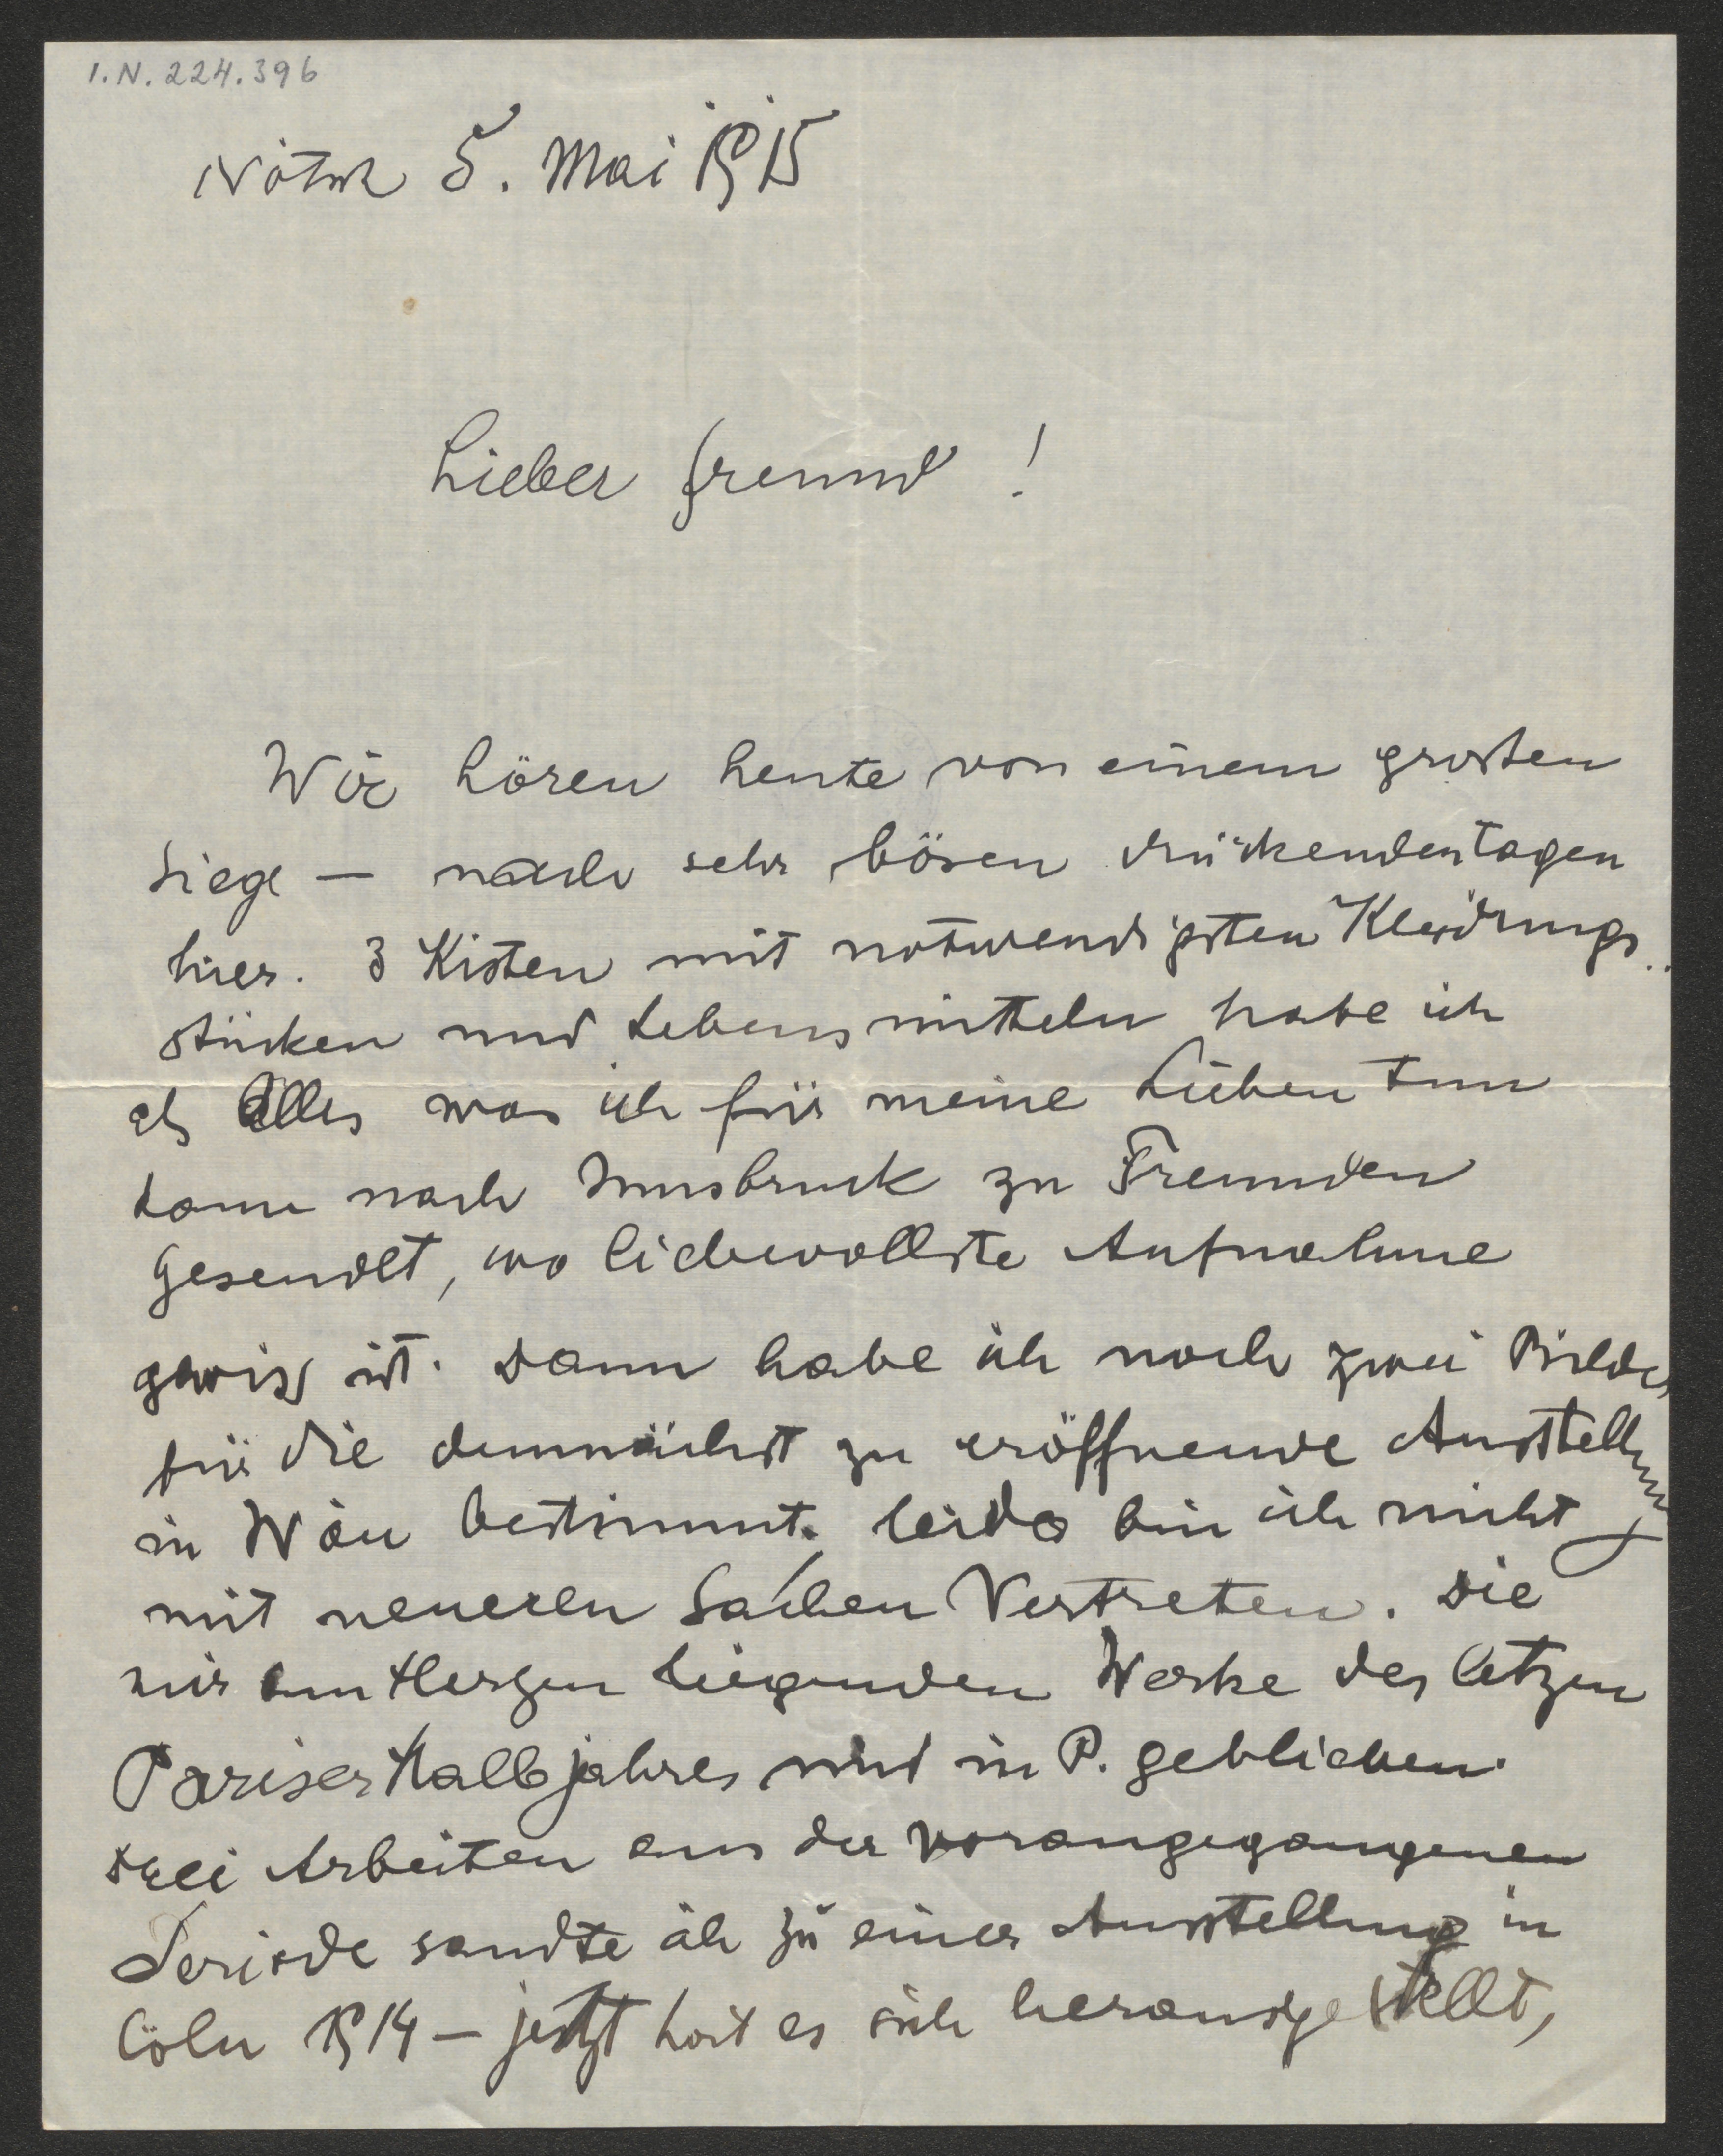 I.N. 224.396
Nötsch 5. Mai 1915
Lieber Freund!
Wir hören heute von einem grossen
Siege — nach sehr bösen drückenden tagen
hier. 3 Kisten mit notwendigsten Kleidungs..
stücken und Lebensmitteln habe ich
als Alles was ich für meine Lieben tun
kann nach Innsbruck zu Freunden
gesendet, wo liebevollste Aufnahme
gewiss ist. Dann habe ich noch zwei Bilder
für die demnächst zu eröffnende Ausstellung
in Wien bestimmt. leider bin ich nicht
mit neueren Sachen Vertreten. Die
mir am Herzen liegenden Werke des letzen
Pariser Halbjahres sind in P. geblieben.
Drei Arbeiten aus der vorangegangenen
Periode sandte ich zu einer Ausstellung in
Cöln 1914 — jetzt hat es sich herausgestellt,